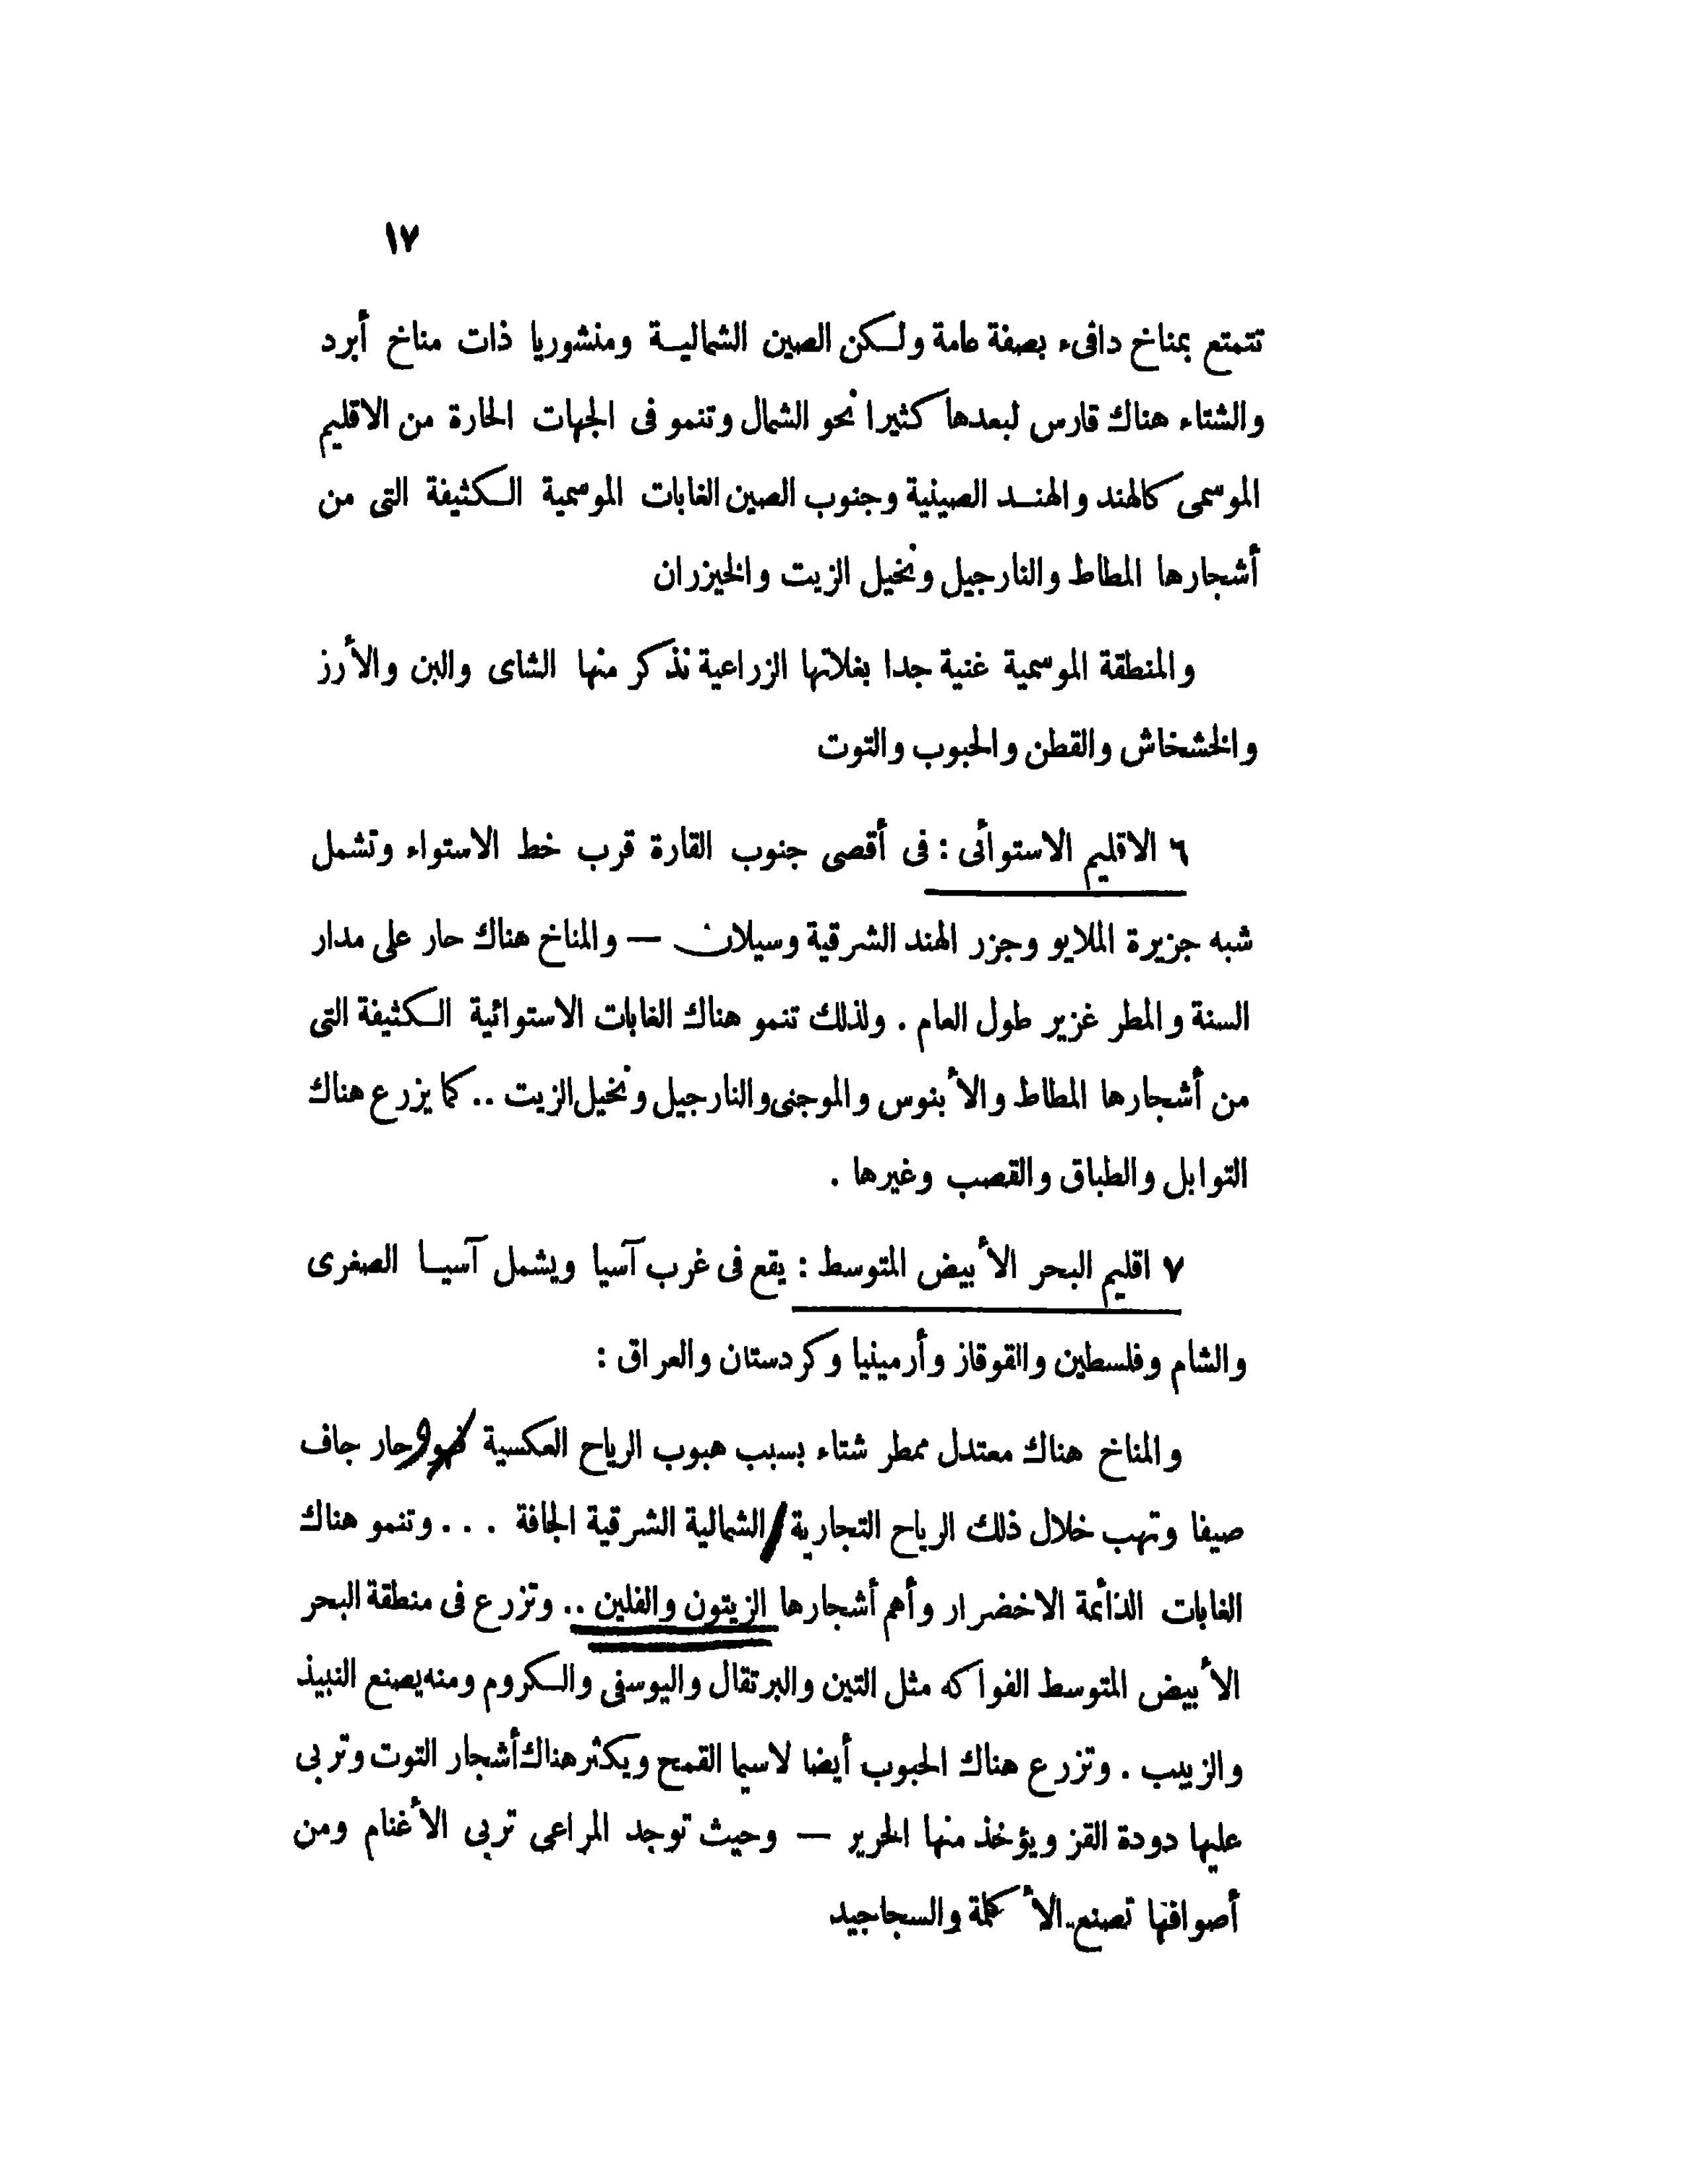 ١٧
تتمتع بمناخ دافىء بصفة عامة ولكن الصين الشمالية ومنشوريا ذات مناخ أبرد
والشتاء هناك قارس لبعدها كثيرا نحو الشمال وتنمو فى الجهات الحارة من الاقليم
الموسمى كالهند والهند الصينية وجنوب الصين الغابات الموسمية الكثيفة التى من
أشجارها المطاط والنارجيل ونخيل الزيت والخيزران
والمنطقة الموسمية غنية جدا بغلاتها الزراعية نذكر منها الشاى والبن والأرز
والخشخاش والقطن والحبوب والتوت
٦ الاقليم الاستوائى : فى أقصى جنوب القارة قرب خط الاستواء وتشمل
شبه جزيرة الملايو وجزر الهند الشرقية وسيلان — والمناخ هناك حار على مدار
السنة والمطر غزير طول العام . ولذلك تنمو هناك الغابات الاستوائية الكثيفة التى
من أشجارها المطاط والأبنوس والموجنى والنارجيل ونخيل الزيت .. كما يزرع هناك
التوابل والطباق والقصب وغيرها .
٧ اقليم البحر الأبيض المتوسط : يقع فى غرب آسيا ويشمل آسيا الصغرى
والشام وفلسطين والقوقاز وأرمينيا وكردستان والعراق :
والمناخ هناك معتدل ممطر شتاء بسبب هبوب الرياح العكسية و حار جاف
صيفا وتهب خلال ذلك الرياح التجارية الشمالية الشرقية الجافة . . . وتنمو هناك
الغابات الدائمة الاخضرار وأهم أشجارها الزيتون والفلين .. وتزرع فى منطقة البحر
الأبيض المتوسط الفواكه مثل التين والبرتقال واليوسفى والكروم ومنه يصنع النبيذ
والزبيب . وتزرع هناك الحبوب أيضا لاسيما القمح ويكثر هناك أشجار التوت وتربى
عليها دودة القز ويؤخذ منها الحرير — وحيث توجد المراعى تربى الأغنام ومن
أصوافها تصنع الأكلمة والسجاجيد